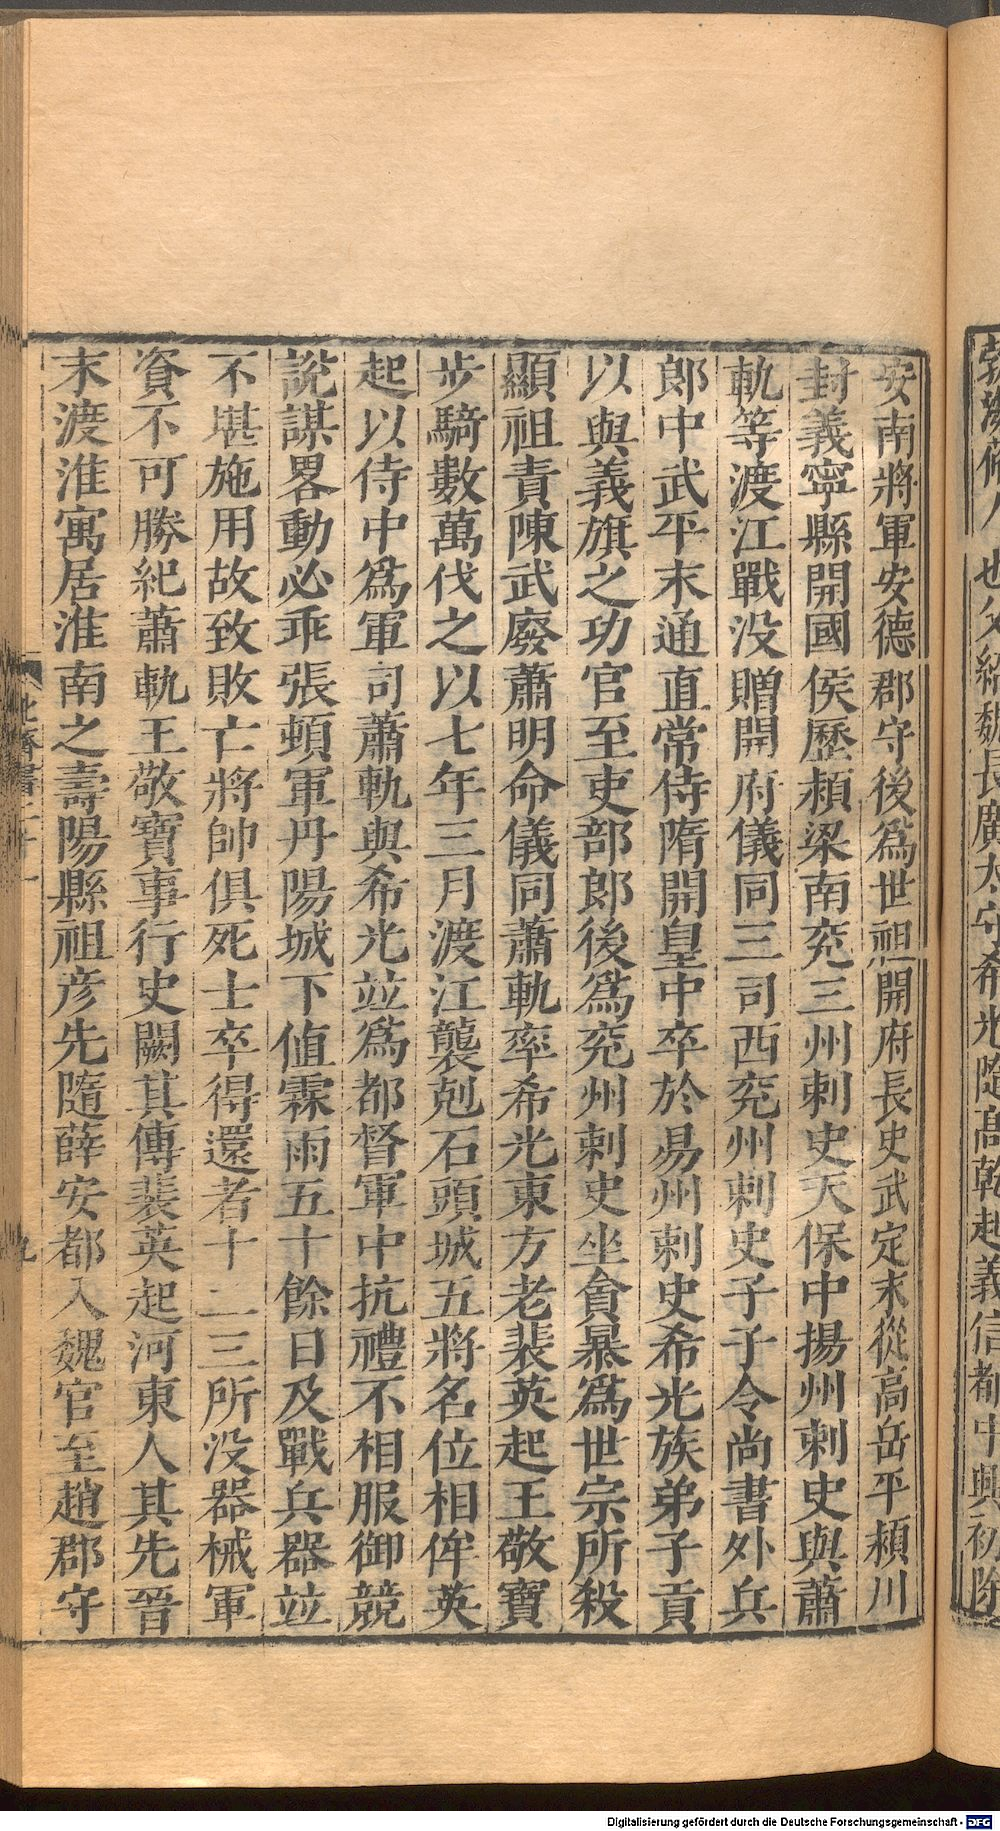 勃海脩人也父紹魏長廣太守希光隨高乾起義信都中興初除
安南將軍安德郡守後爲世祖開府長史武定末從高岳平潁川
封義寧縣開國侯歷潁梁南兖三州刺史天保中揚州刺史與蕭
軌等渡江戰没贈開府儀同三司西兖州刺史子子令尚書外兵
郎中武平末通直常侍隋開皇中卒於易州刺史希光族弟子貢
以與義旗之功官至吏部郎後爲兖州刺史坐貪暴爲世宗所殺
顯祖責陳武廢蕭明命儀同蕭軌率希光東方老裴英起王敬寶
步騎數萬伐之以七年三月渡江襲剋石頭城五將名位相侔英
起以侍中爲軍司蕭軌與希光竝爲都督軍中抗禮不相服御競
説謀畧動必乖張頓軍丹陽城下值霖雨五十餘日及戰兵器竝
不堪施用故致敗亡將帥俱死士卒得還者十二三所没器械軍
資不可勝紀蕭軌王敬寶事行史闕其傳裴英起河東人其先晉
末渡淮寓居淮南之壽陽縣祖彦先隨薛安都入魏官至趙郡守
北齊書二十一
九
Digitalisierung gefördert durch die Deutsche Forschungsgemeinschaft - DFG